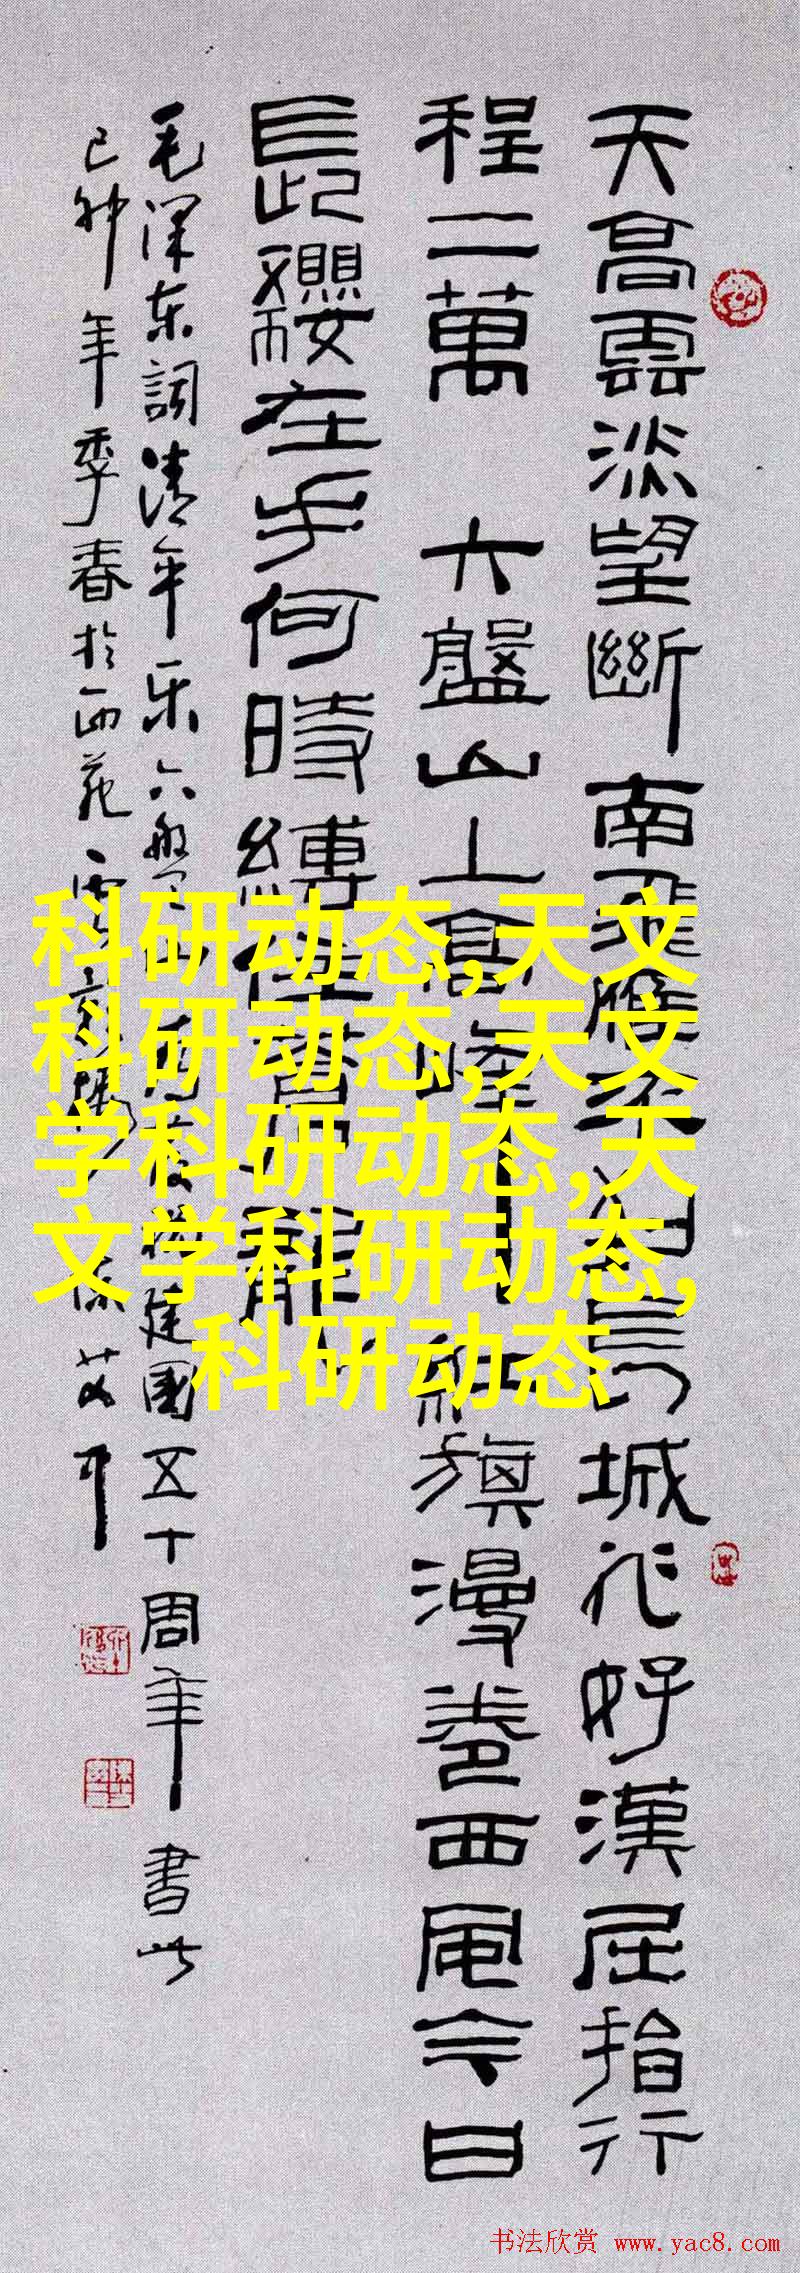 天高雲淡望斷南飛雁不到長城非好漢屈指行
程二萬 六盤山上高峰 紅旗漫卷西風今日
長纓在手何時縛住蒼龍
毛泽东詞清平乐六盤山 建國五十周年書此
己卯年季春於西苑
科研动态,天文
科研动态,天文
学科研动态,天
文学科研动态,
科研动态
书法欣赏 www.yac8.com